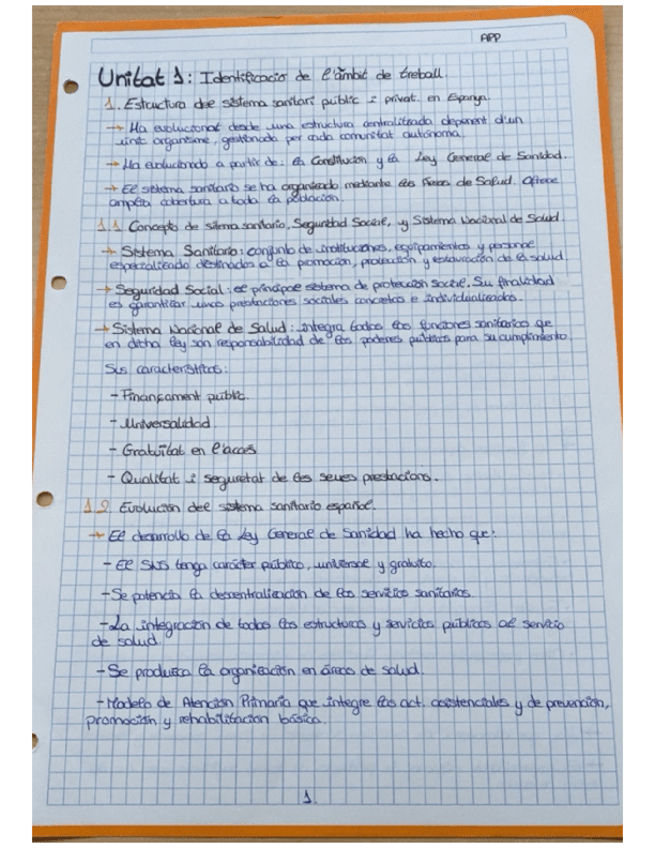 APP
Unitat 1: Identificació de l'àmbit de treball.
1. Estructura del sistema sanitari públic i privat en Espanya.
→ Ha evolucionat desde una estructura centralitzada depenent d'un
únic organisme, gestionada per cada comunitat autónoma.
→ Ha evolucionado a partir de: la Constitución y la Ley General de Sanidad.
→ El sistema sanitario se ha organizado mediante las Áreas de Salud. Ofrece
amplia cobertura a toda la población.
1.1. Concepto de sitema sanitario, Seguridad Social, y Sistema Nacional de Salud.
→ Sistema Sanitario: conjunto de instituciones, equipamientos y personal
especializado destinados a la promoción, protección y restauración de la salud.
→ Seguridad Social: el principal sistema de protección social. Su finalidad
es garantizar unas prestaciones sociales concretas e individualizadas.
→ Sistema Nacional de Salud: integra todas las funciones sanitarias que
en dicha ley son responsabilidad de los poderes públicos para su cumplimiento.
Sus características:
- Finançament públic.
- Universalidad
- Gratuïtat en l'accés
- Qualitat i seguretat de les seues prestacions.
1.2. Evolución del sistema sanitario español.
→ El desarrollo de la Ley General de Sanidad ha hecho que:
- El SNS tenga carácter público, universal y gratuito.
- Se potencia la descentralización de los servicios sanitarios.
- La integración de todas las estructuras y servicios públicos al servicio
de salud.
- Se produzca la organización en áreas de salud.
- Modelo de Atención Primaria que integre las act. asistenciales y de prevención,
promoción y rehabilitación básica.
1.